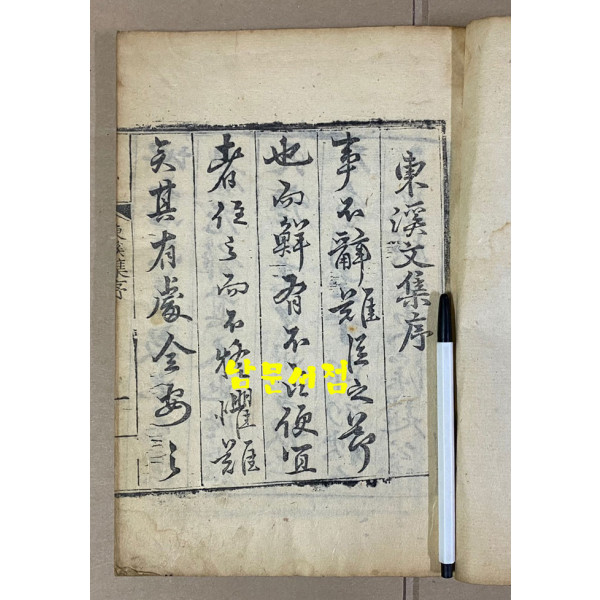 東溪文集序
事不辭難臣之節
也而鮮有不占便宜
者任之而不怪懼難
矣其有處全安之
東溪集序
一
남문서점